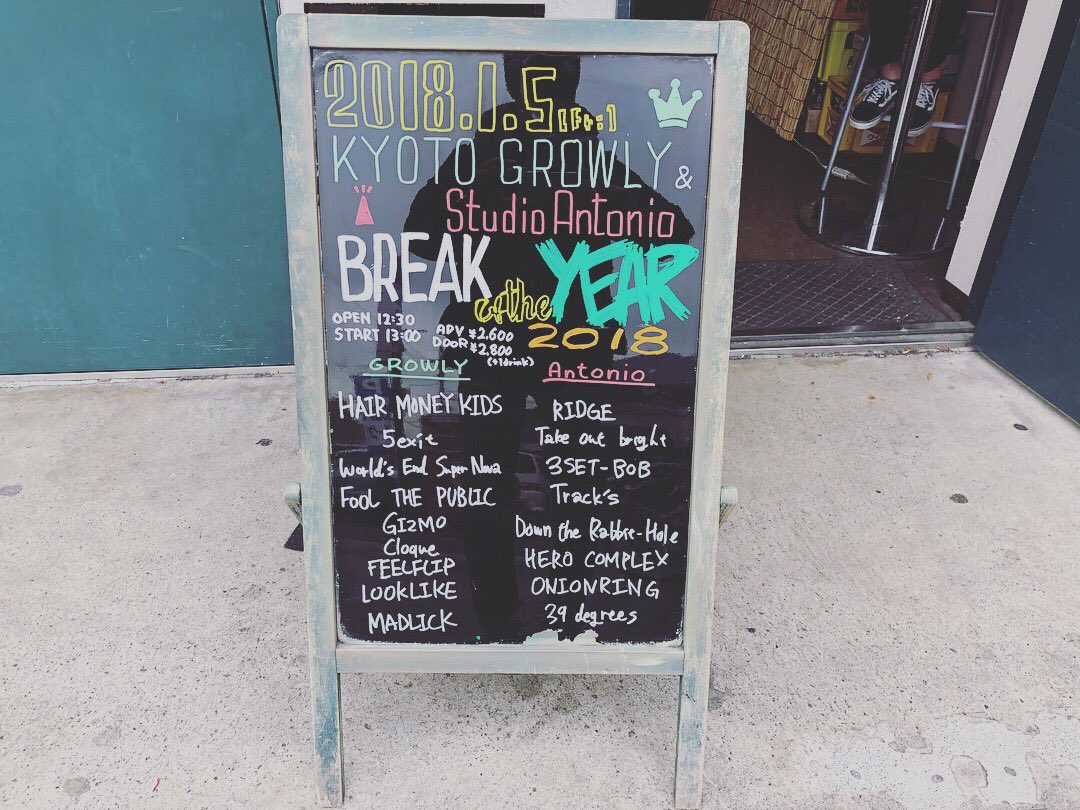 2018.1.5[Fri]
KYOTO GROWLY &
Studio Antonio
BREAK of the YEAR
2018
OPEN 12:30
START 13:00
ADV ¥2,600
DOOR ¥2,800
(+1drink)
GROWLY
HAIR MONEY KIDS
5exit
World's End Super Nova
FOOL THE PUBLIC
GIZMO
Cloque
FEELFLIP
LOOKLIKE
MADLICK
Antonio
RIDGE
Take out bright
3SET-BOB
Track's
Down the Rabbit-Hole
HERO COMPLEX
ONIONRING
39 degrees